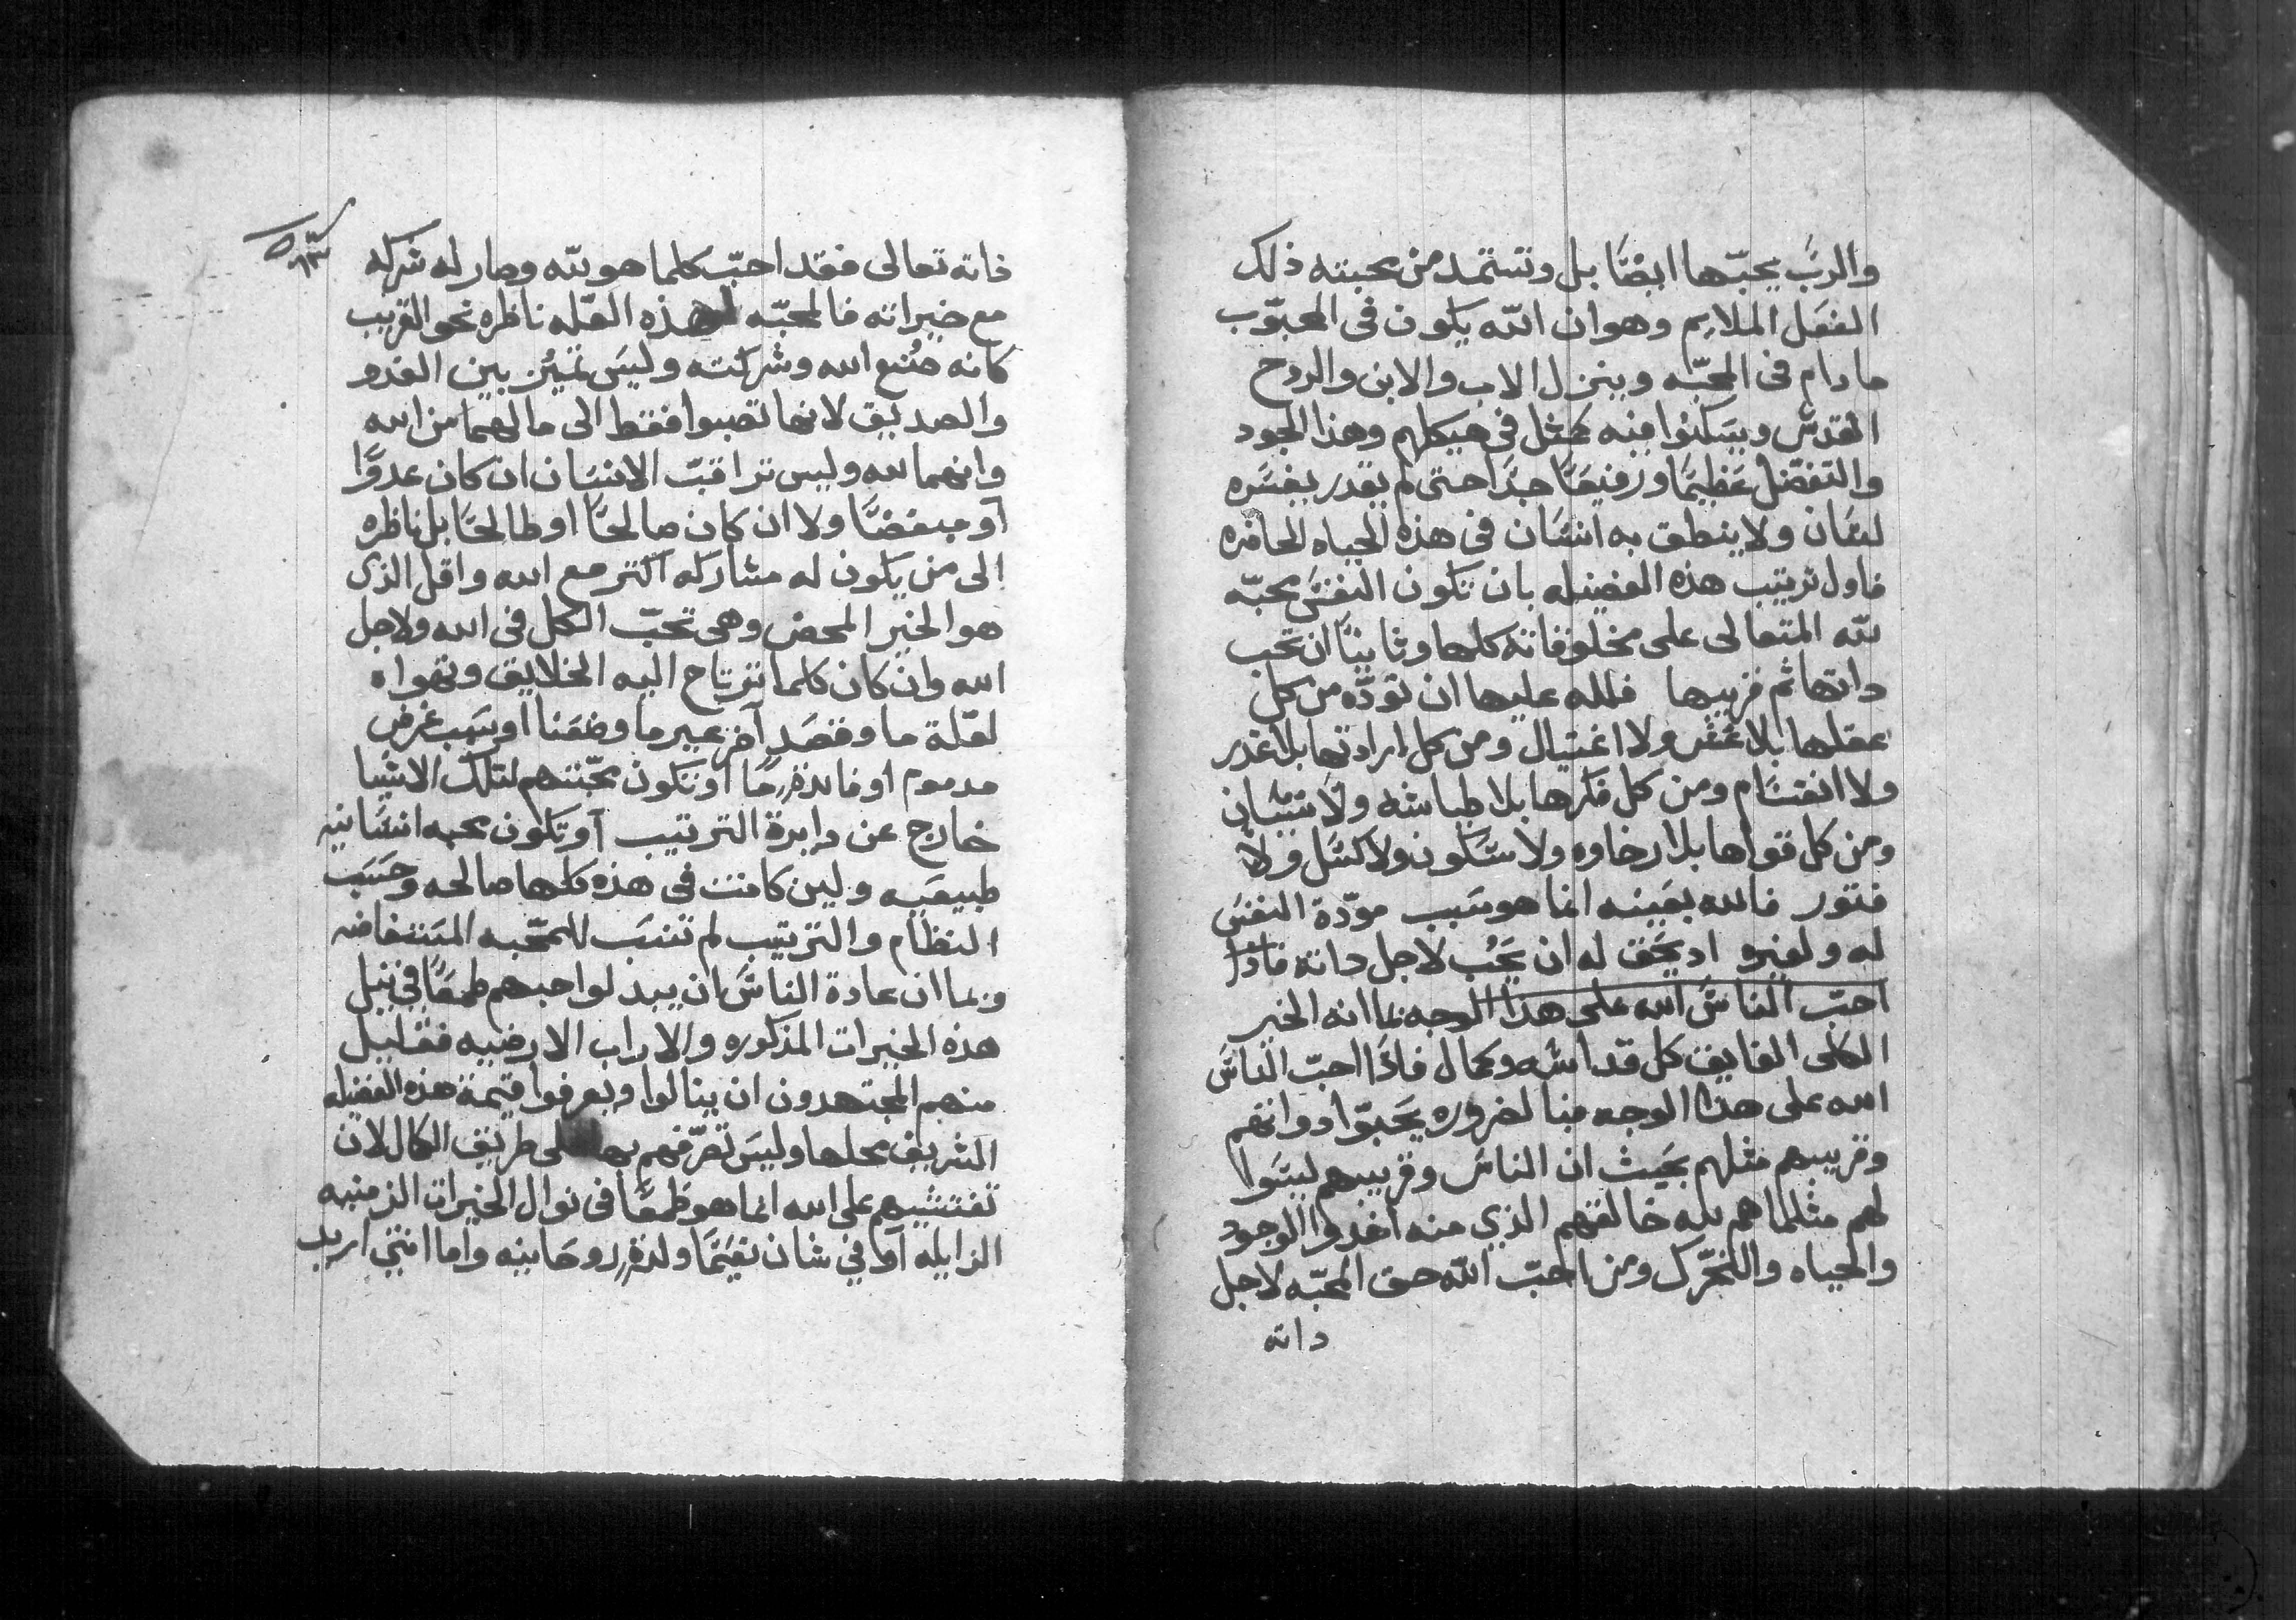 والربّ يحبّها ايضًا بل وتستمد من محبته ذلك
الفعل الملايم وهو ان الله يكون في المحبوب
مادام في المحبّه وينزل الاب والابن والروح
القدس ويسكنوا فيه كمثل في هيكلهم وهذا الجود
والتفضّل عظيمًا ورفيعًا جدًا حتى لم يقدر يفسره
لسان ولا ينطق به انسان في هذه الحياه الحاضره
فاول ترتيب هذه الفضيله بان تكون النفس محبّه
لله المتعالى على مخلوقاته كلها وثانيًا ان تحب
داتها ثم قريبها فلله عليها ان تودّه من كل
عقلها بلا غش ولا اغتيال ومن كل ارادتها بلا غدر
ولا انقسام ومن كل فكرها بلا طياشه ولا نسيان
ومن كل قواها بلا رخاوه ولا سكون ولا كسل ولا
فتور فالله بعينه انما هو سبب مودّة النفس
له ولغيره اد يحق له ان يحب لاجل داته فادا
احبّ الناس الله على هذا الوجه بما انه الخير
الكلى الفايق كل قداسه وكمال فاذا احبّ الناس
الله على هذا الوجه فبالضروره يحبّوا دواتهم
وقريبهم مثلهم بحيث ان الناس وقريبهم ليسوا
لهم مثلما هم لله خالقهم الذي منه اخدوا الوجود
والحياه والتحرّك ومن احبّ الله حق المحبّه لاجل
داته
داته تعالى فقد احبّ كلما هو لله وصار له شركه
مع خيراته فالمحبّه لهذه العلّه ناظره نحو القريب
كانه صُنع الله وشركته وليس تميُز بين العدو
والصديق لانها تصبوا فقط الى ما لهما من الله
وانهما لله وليس تراقب الانسان ان كان عدوًا
او مبغضًا ولا ان كان صالحًا او طالحًا بل ناظره
الى من يكون له مشاركه اكتر مع الله واقل الذي
هو الخير المحض وهى تحبّ الكل في الله ولاجل
الله وان كان كلما ترتاح اليه الخلايق وتهواه
لعلّة ما وقصد آخر غير ما وضعنا او سبب غرض
مدموم او فايدةٍ ما او تكون محبّتهم لتلك الاشيا
خارج عن دايرة الترتيب او تكون محبه انسانيه
طبيعيه ولين كانت في هذه كلها صالحه وحسب
النظام والترتيب لم تنسب للمحّبه المستفاضه
وبما ان عادة الناس ان يبدلوا حبهم طمعًا في نيل
هذه الخيرات المذكوره والاراب الارضيه فقليل
منهم المجتهدون ان ينالوا ويعرفوا قيمة هذه الفضيله
الشريف محلها وليس تصرّفهم بها على طريق الكمال لان
تفتيشهم على الله انما هو طمعًا في نوال الخيرات الزمنيه
الزايله اما في شان نفعٍ ما ولدةٍ روحانيه واما انني اريد